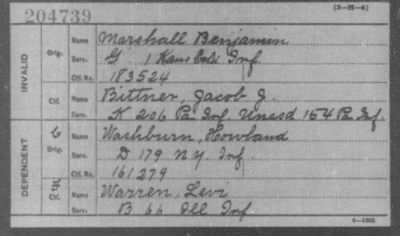 204739 (3-M-4)
INVALID
Orig.
Name Marshall Benjamin
Serv. G 1 Kans Cold Inf.
Ctf. No. 183524
Ctf.
Name Bittner, Jacob J.
Serv. K 206 Pa Inf. Unasd 154 Pa Inf.
DEPENDENT
C
Orig.
Name Washburn, Howland
Serv. D 179 N.Y. Inf.
Ctf. No. 161279
Ctf.
Name Warren, Levi
Serv. B 66 Ill Inf